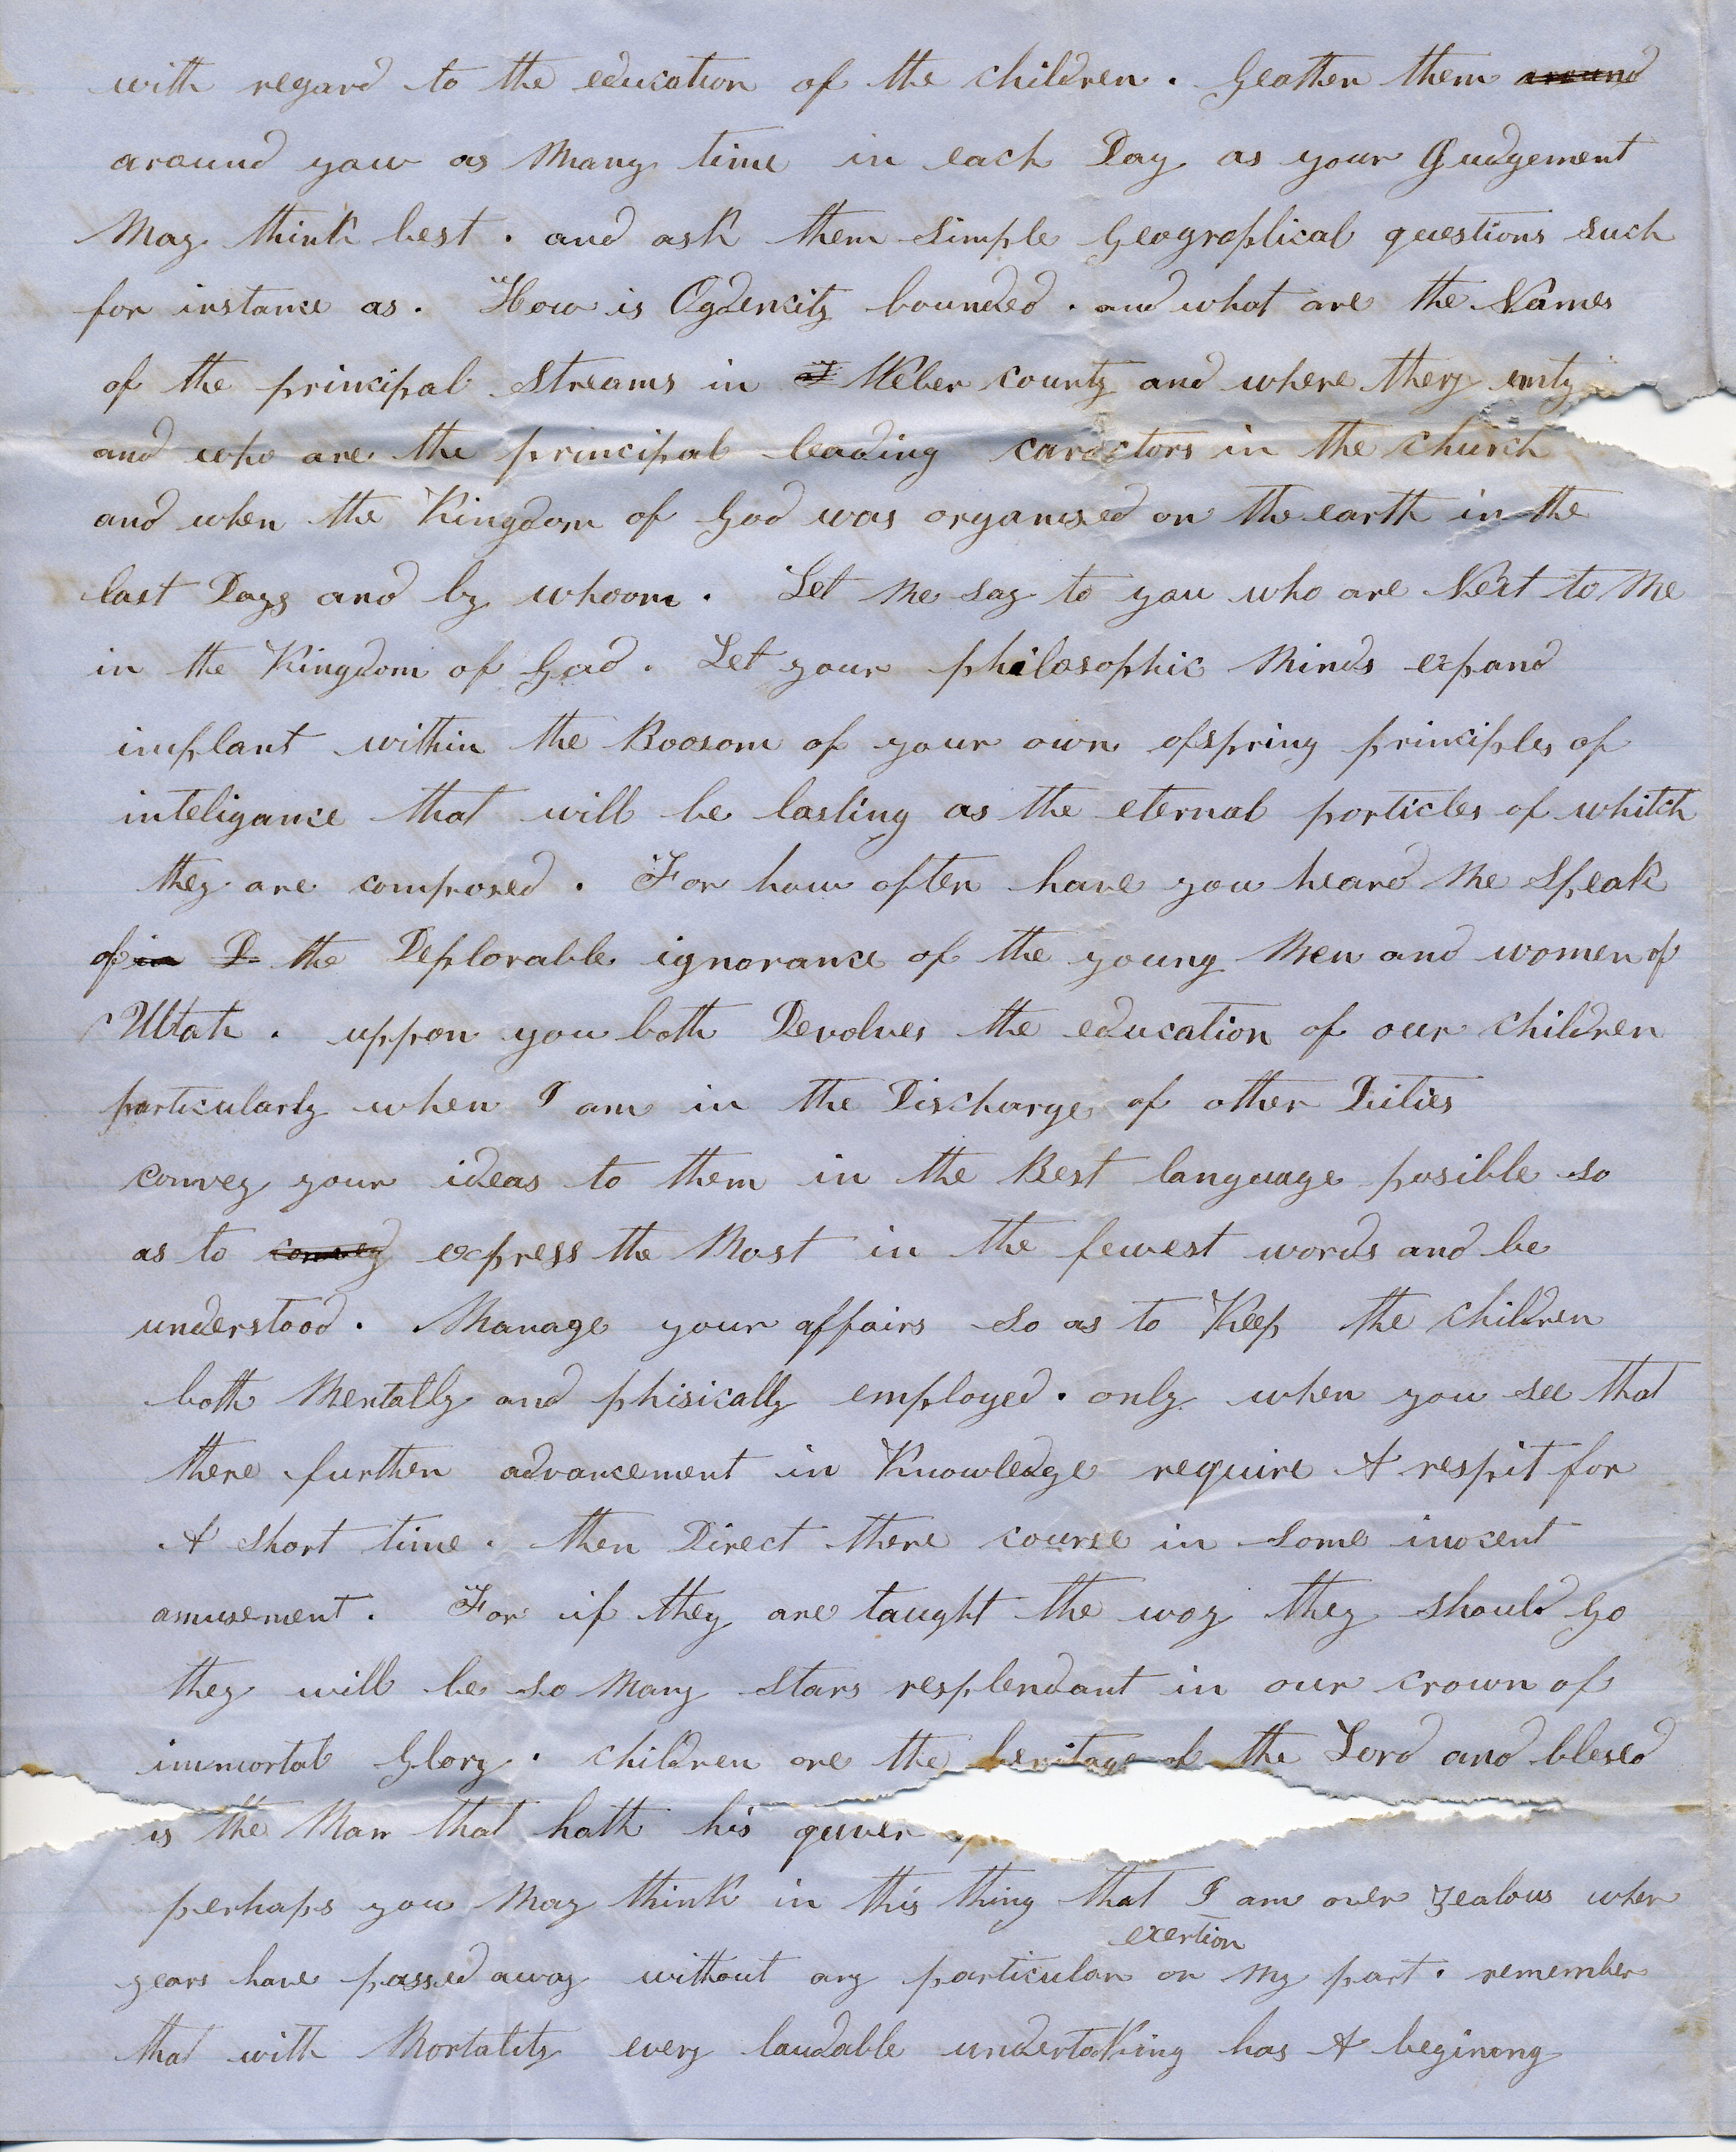 with regard to the education of the children. Geather them around
around you as Many time in each Day as your Judgement
May think best. and ask them simple Geographical questions such
for instance as. How is Ogdencity bounded. and what are the Names
of the principal Streams in Weber county and where they emty
and who are the principal leading caractors in the church
and when the Kingdom of God was organised on the earth in the
last Days and by whoom. Let Me say to you who are Next to Me
in the Kingdom of God. Let your philosophic Minds expand
implant within the Boosom of your own ofspring principles of
inteligance that will be lasting as the eternal particles of whitch
they are composed. For how often have you heard Me Speak
of in D the Deplorable ignorance of the young Men and women of
Utah. uppon you both Devolves the education of our children
particularly when I am in the Discharge of other Duties
convey your ideas to them in the Best language posible so
as to convey express the Most in the fewest words and be
understood. Manage your affairs so as to Keep the children
both Mentally and phisically employed. only when you see that
there further advancement in Knowledge require A respit for
A short time. then Direct there course in some inocent
amusement. For if they are taught the way they should Go
they will be so Many Stars resplendant in our crown of
immortal Glory. children are the heritage of the Lord and blesed
is the Man that hath his quiver
perhaps you May think in this thing that I am over zealous when
exertion
years have passed away without any particular on My part. remember
that with Mortality every laudable undertaKing has A begining